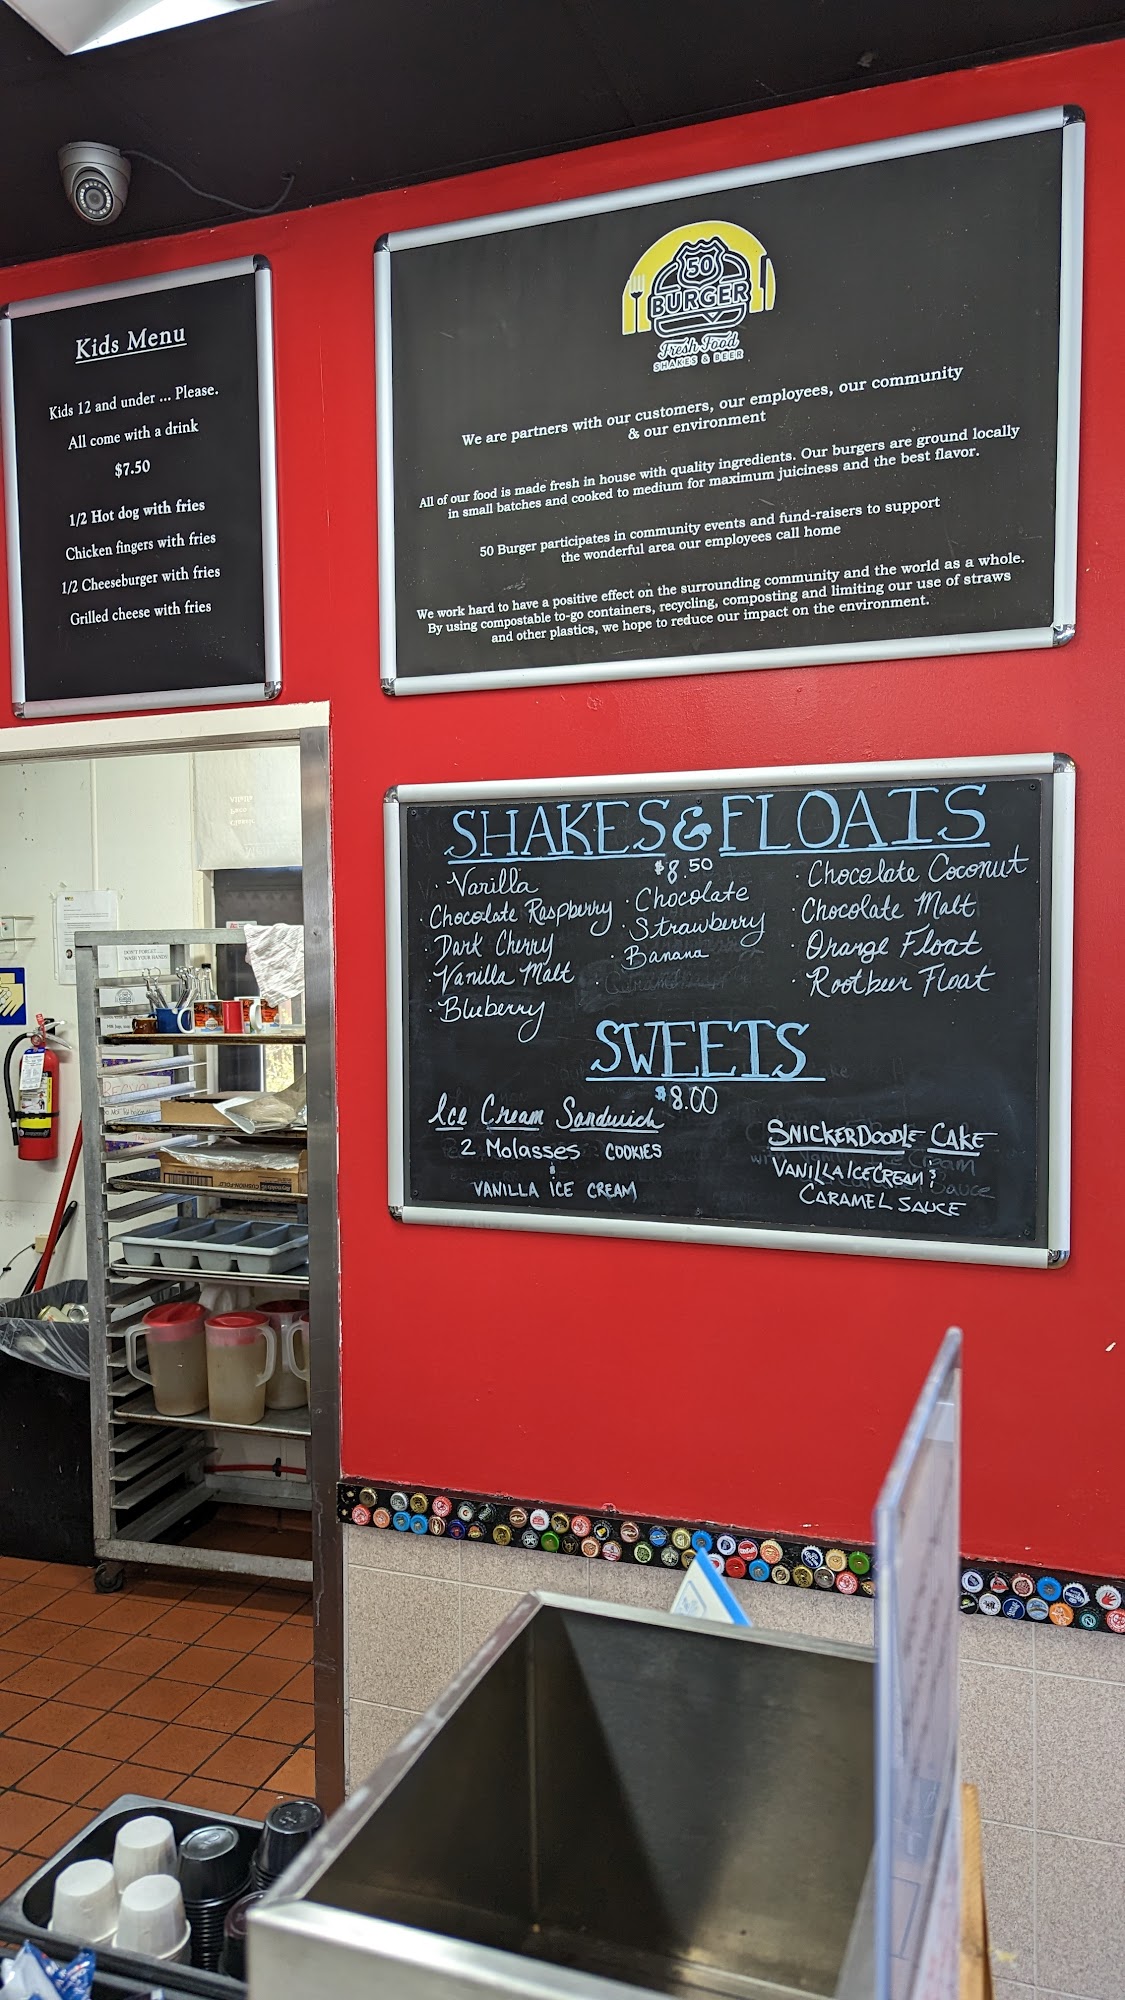 Kids Menu
Kids 12 and under ... Please.
All come with a drink
$7.50
1/2 Hot dog with fries
Chicken fingers with fries
1/2 Cheeseburger with fries
Grilled cheese with fries
50
BURGER
Fresh Food
SHAKES & BEER
We are partners with our customers, our employees, our community
& our environment
All of our food is made fresh in house with quality ingredients. Our burgers are ground locally
in small batches and cooked to medium for maximum juiciness and the best flavor.
50 Burger participates in community events and fund-raisers to support
the wonderful area our employees call home
We work hard to have a positive effect on the surrounding community and the world as a whole.
By using compostable to-go containers, recycling, composting and limiting our use of straws
and other plastics, we hope to reduce our impact on the environment.
SHAKES & FLOATS
$8.50
· Vanilla
· Chocolate Raspberry
· Dark Cherry
· Vanilla Malt
· Blueberry
· Chocolate
· Strawberry
· Banana
· Chocolate Coconut
· Chocolate Malt
· Orange Float
· Rootbeer Float
SWEETS
$8.00
Ice Cream Sandwich
2 Molasses COOKIES
&
VANILLA ICE CREAM
SNICKERDOODLE CAKE
VANILLA ICE CREAM &
CARAMEL SAUCE
DON'T FORGET
WASH YOUR HANDS
RECYCLE